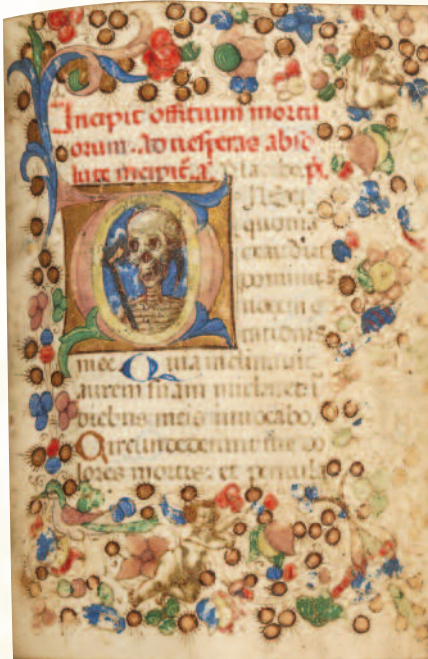 Incipit offitium mortu
orum. Ad uesperas abso
lute incipit. a. Placebo. p̄.
ilexi
quoniā
exaudiet
dominus
uocem o
rationis
mee. Quia inclinauit
aurem suam michi: et i
diebus meis inuocabo.
Circundederunt me do
lores mortis: et pericula